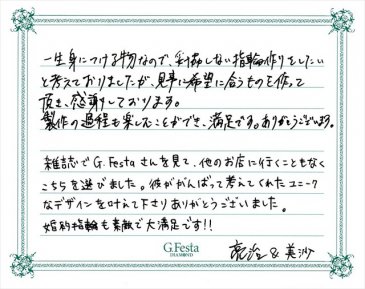 一生身につける物なので、妥協しない指輪作りをしたい
と考えておりましたが、見事に希望に合うものを作って
頂き、感謝しております。
製作の過程も楽しむことができ、満足です。ありがとうございます。
雑誌でG.Festaさんを見て、他のお店に行くこともなく
こちらを選びました。彼ががんばって考えてくれたユニーク
なデザインを叶えて下さりありがとうございました。
婚約指輪も素敵で大満足です!!
G.Festa
DIAMOND
亮治&美沙